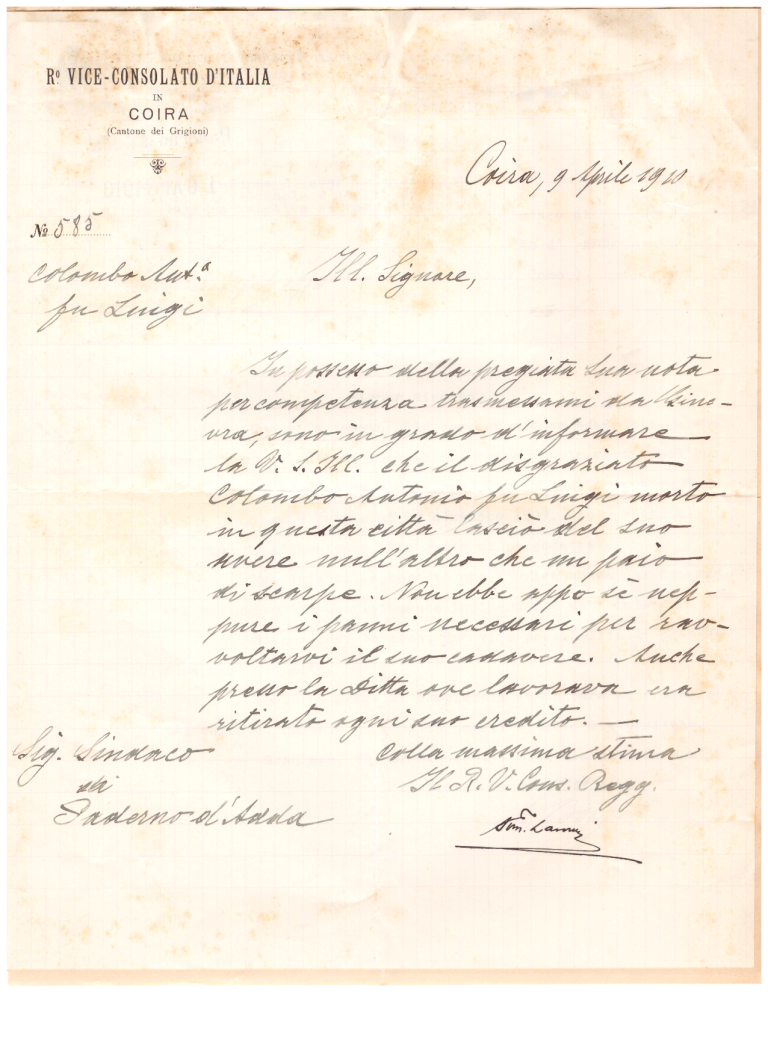 Rº VICE-CONSOLATO D'ITALIA
IN
COIRA
(Cantone dei Grigioni)
Coira, 9 Aprile 1910
Nº 585
Colombo Antº
fu Luigi
Ill. Signore,
In possesso della pregiata Sua nota
per competenza trasmessami da Gine-
vra, sono in grado d'informare
la V. S. Ill. che il disgraziato
Colombo Antonio fu Luigi morto
in questa città lasciò del suo
avere null'altro che un paio
di scarpe. Non ebbe appo sè nep-
pure i panni necessari per rav-
voltarvi il suo cadavere. Anche
presso la Ditta ove lavorava era
ritirato ogni suo credito. —
Colla massima stima
Il R. V. Cons. Regg.
Sig. Sindaco
di
Paderno d'Adda